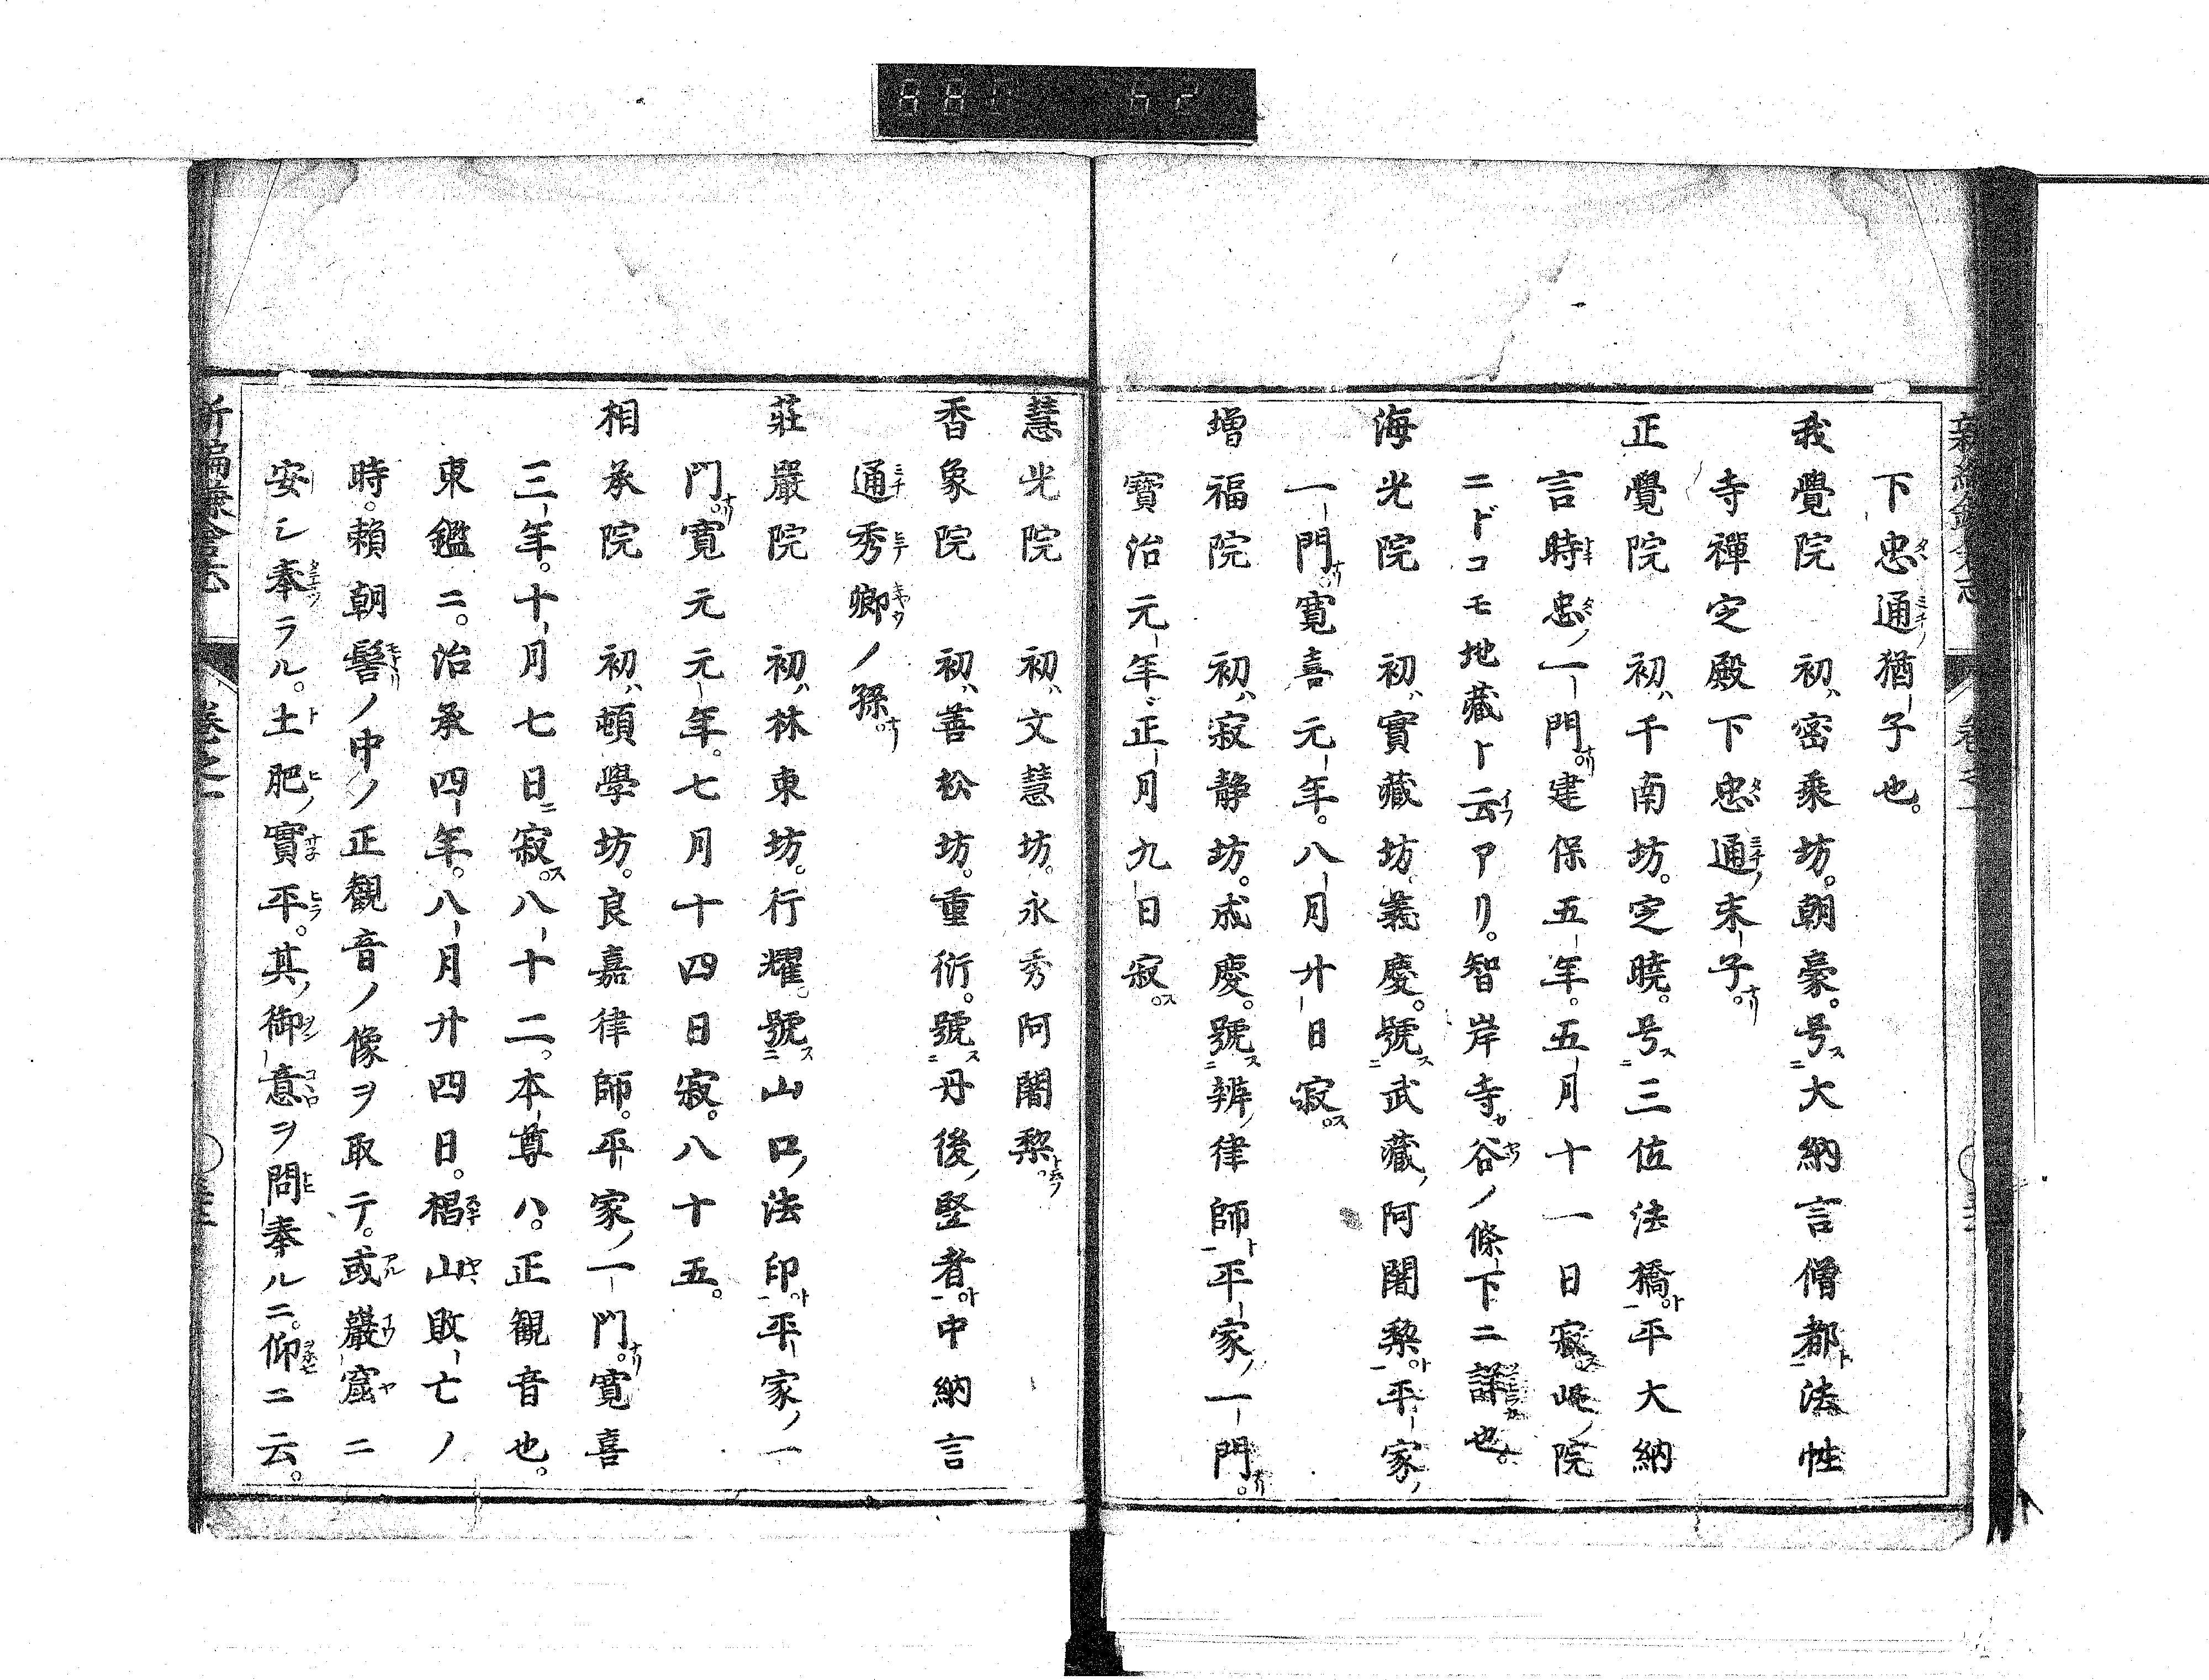 下忠通猶子也。
我覺院　初ハ密乘坊。朝豪。号ス大納言僧都ト法性
寺禪定殿下忠通ノ末子ナリ。
正覺院　初ハ千南坊。定曉。号ス三位法橋ト。平大納
言時忠ノ一門ナリ。建保五年。五月十一日寂ス。此ノ院
ニドコモ地藏ト云アリ。智岸寺カ谷ノ條下ニ詳也。
海光院　初ハ實藏坊義慶。號ス武藏ノ阿闍梨ト。平家ノ
一門ナリ。寛喜元年。八月廿日寂ス。
増福院　初ハ寂静坊。成慶。號ス辨ノ律師ト平家ノ一門ナリ。
寶治元年正月九日寂ス。
慧光院　初ハ文慧坊。永秀阿闍梨ト云フ。
香象院　初ハ善松坊。重衍。號ス丹後ノ竪者ト。中納言
通秀卿ノ孫ナリ。
莊嚴院　初ハ林東坊。行耀。號ス山口ノ法印ト。平家ノ一
門ナリ。寛元元年。七月十四日寂。八十五。
相承院　初ハ頓學坊。良嘉律師。平家ノ一門ナリ。寛喜
三年。十月七日ニ寂ス。八十二。本尊ハ。正観音也。
東鑑ニ。治承四年。八月廿四日。椙山敗亡ノ
時。賴朝髻ノ中ノ正観音ノ像ヲ取テ。或巖窟ニ
安シ奉ラル。土肥ノ實平。其ノ御意ヲ問奉ルニ。仰ニ云。
新編鎌倉志　卷之一